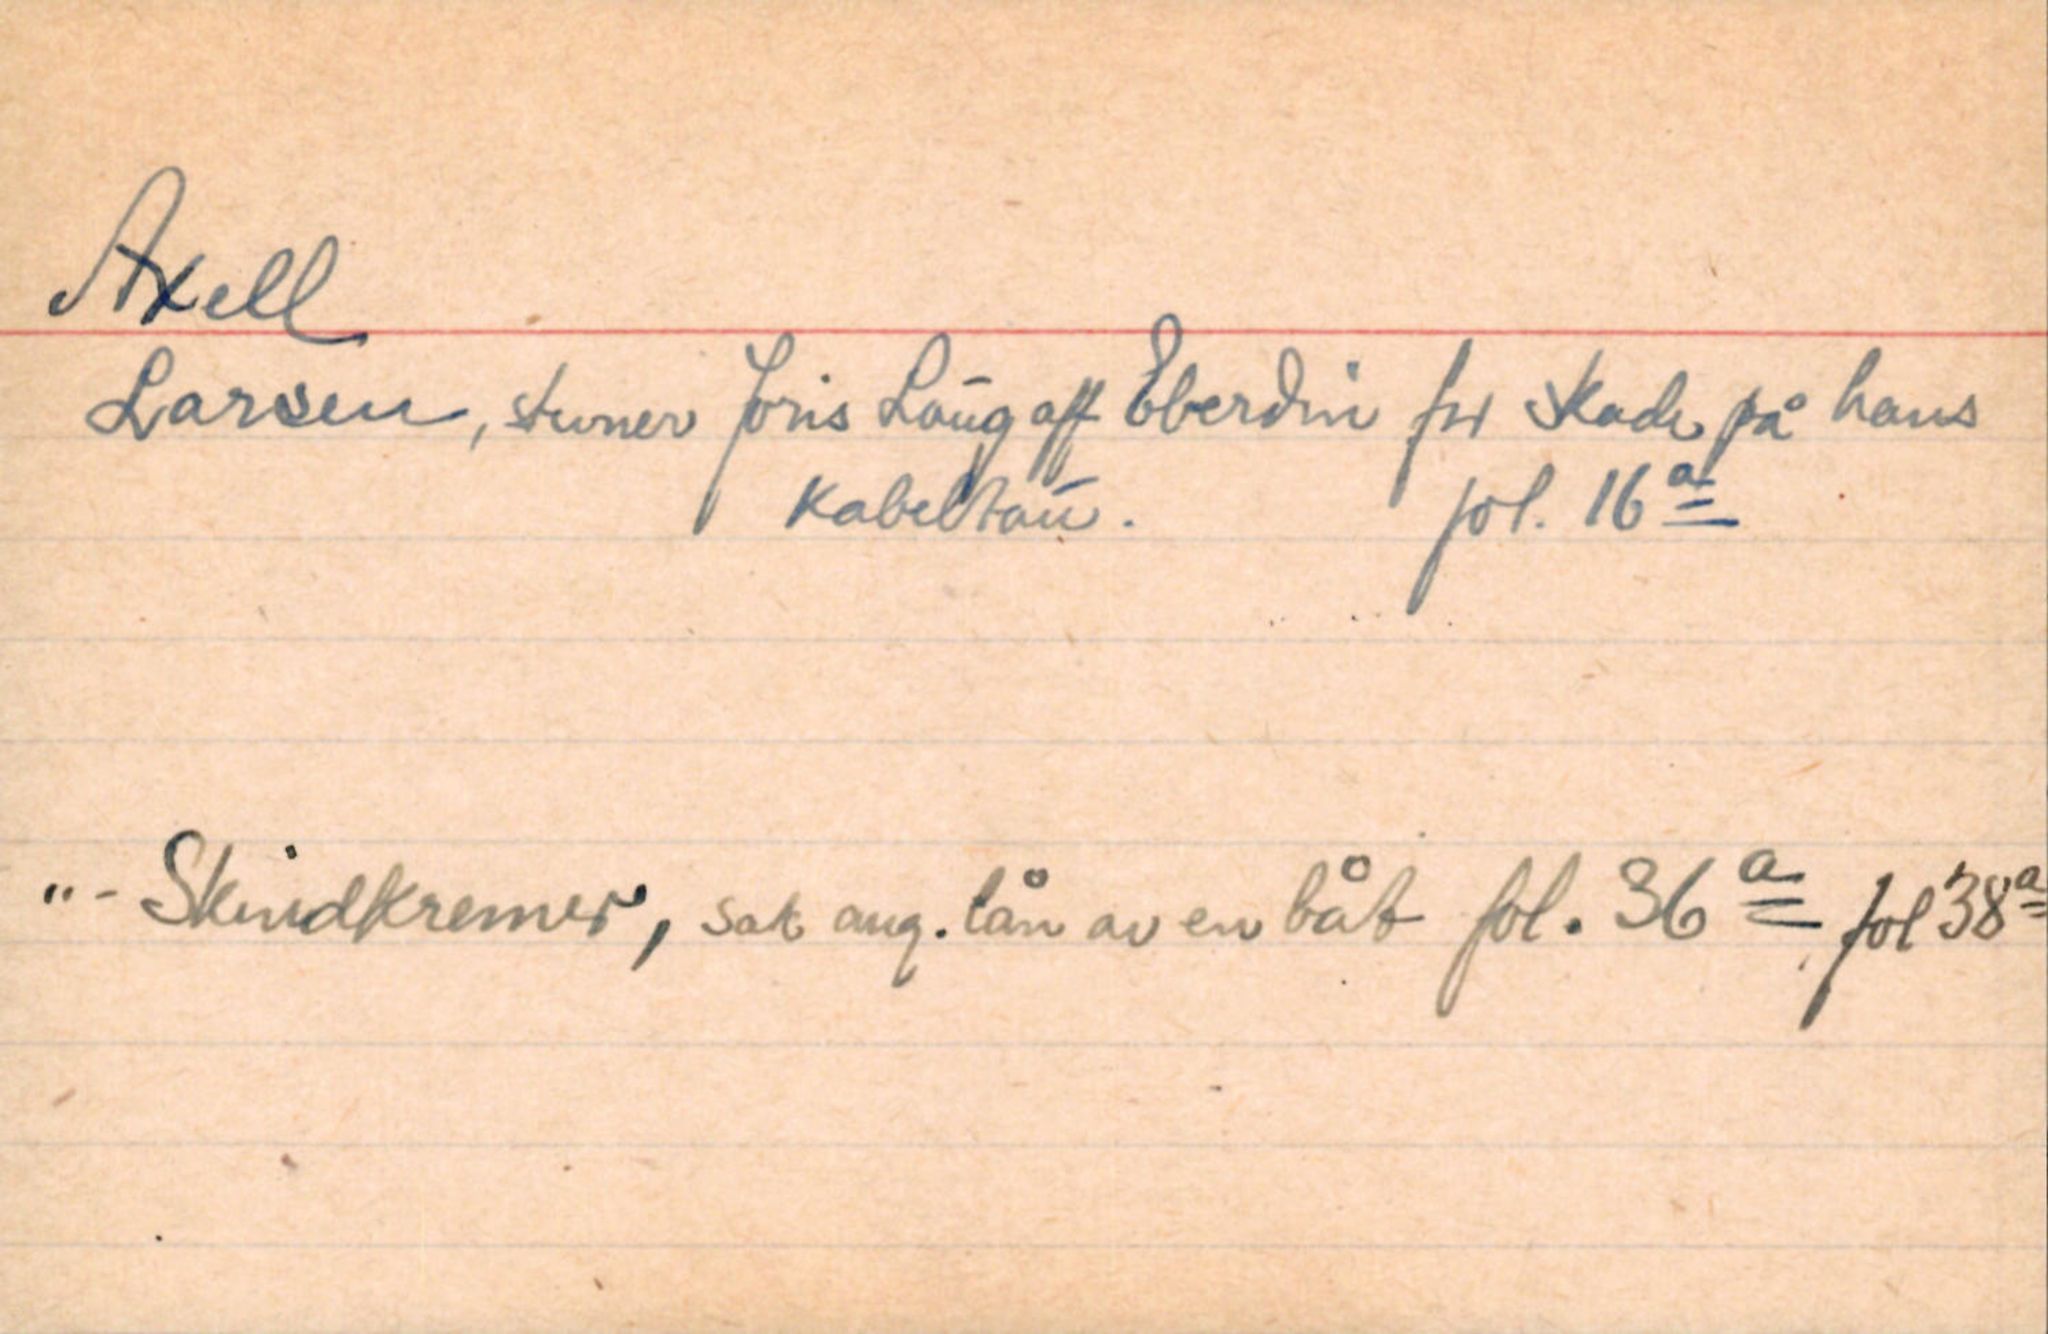 Axell
Larsen, stevner Joris Laug aff Eberdin for skade på hans
kabeltau. fol. 16a
"- Skindkremer, sak ang. lån av en båt fol. 36a fol 38a